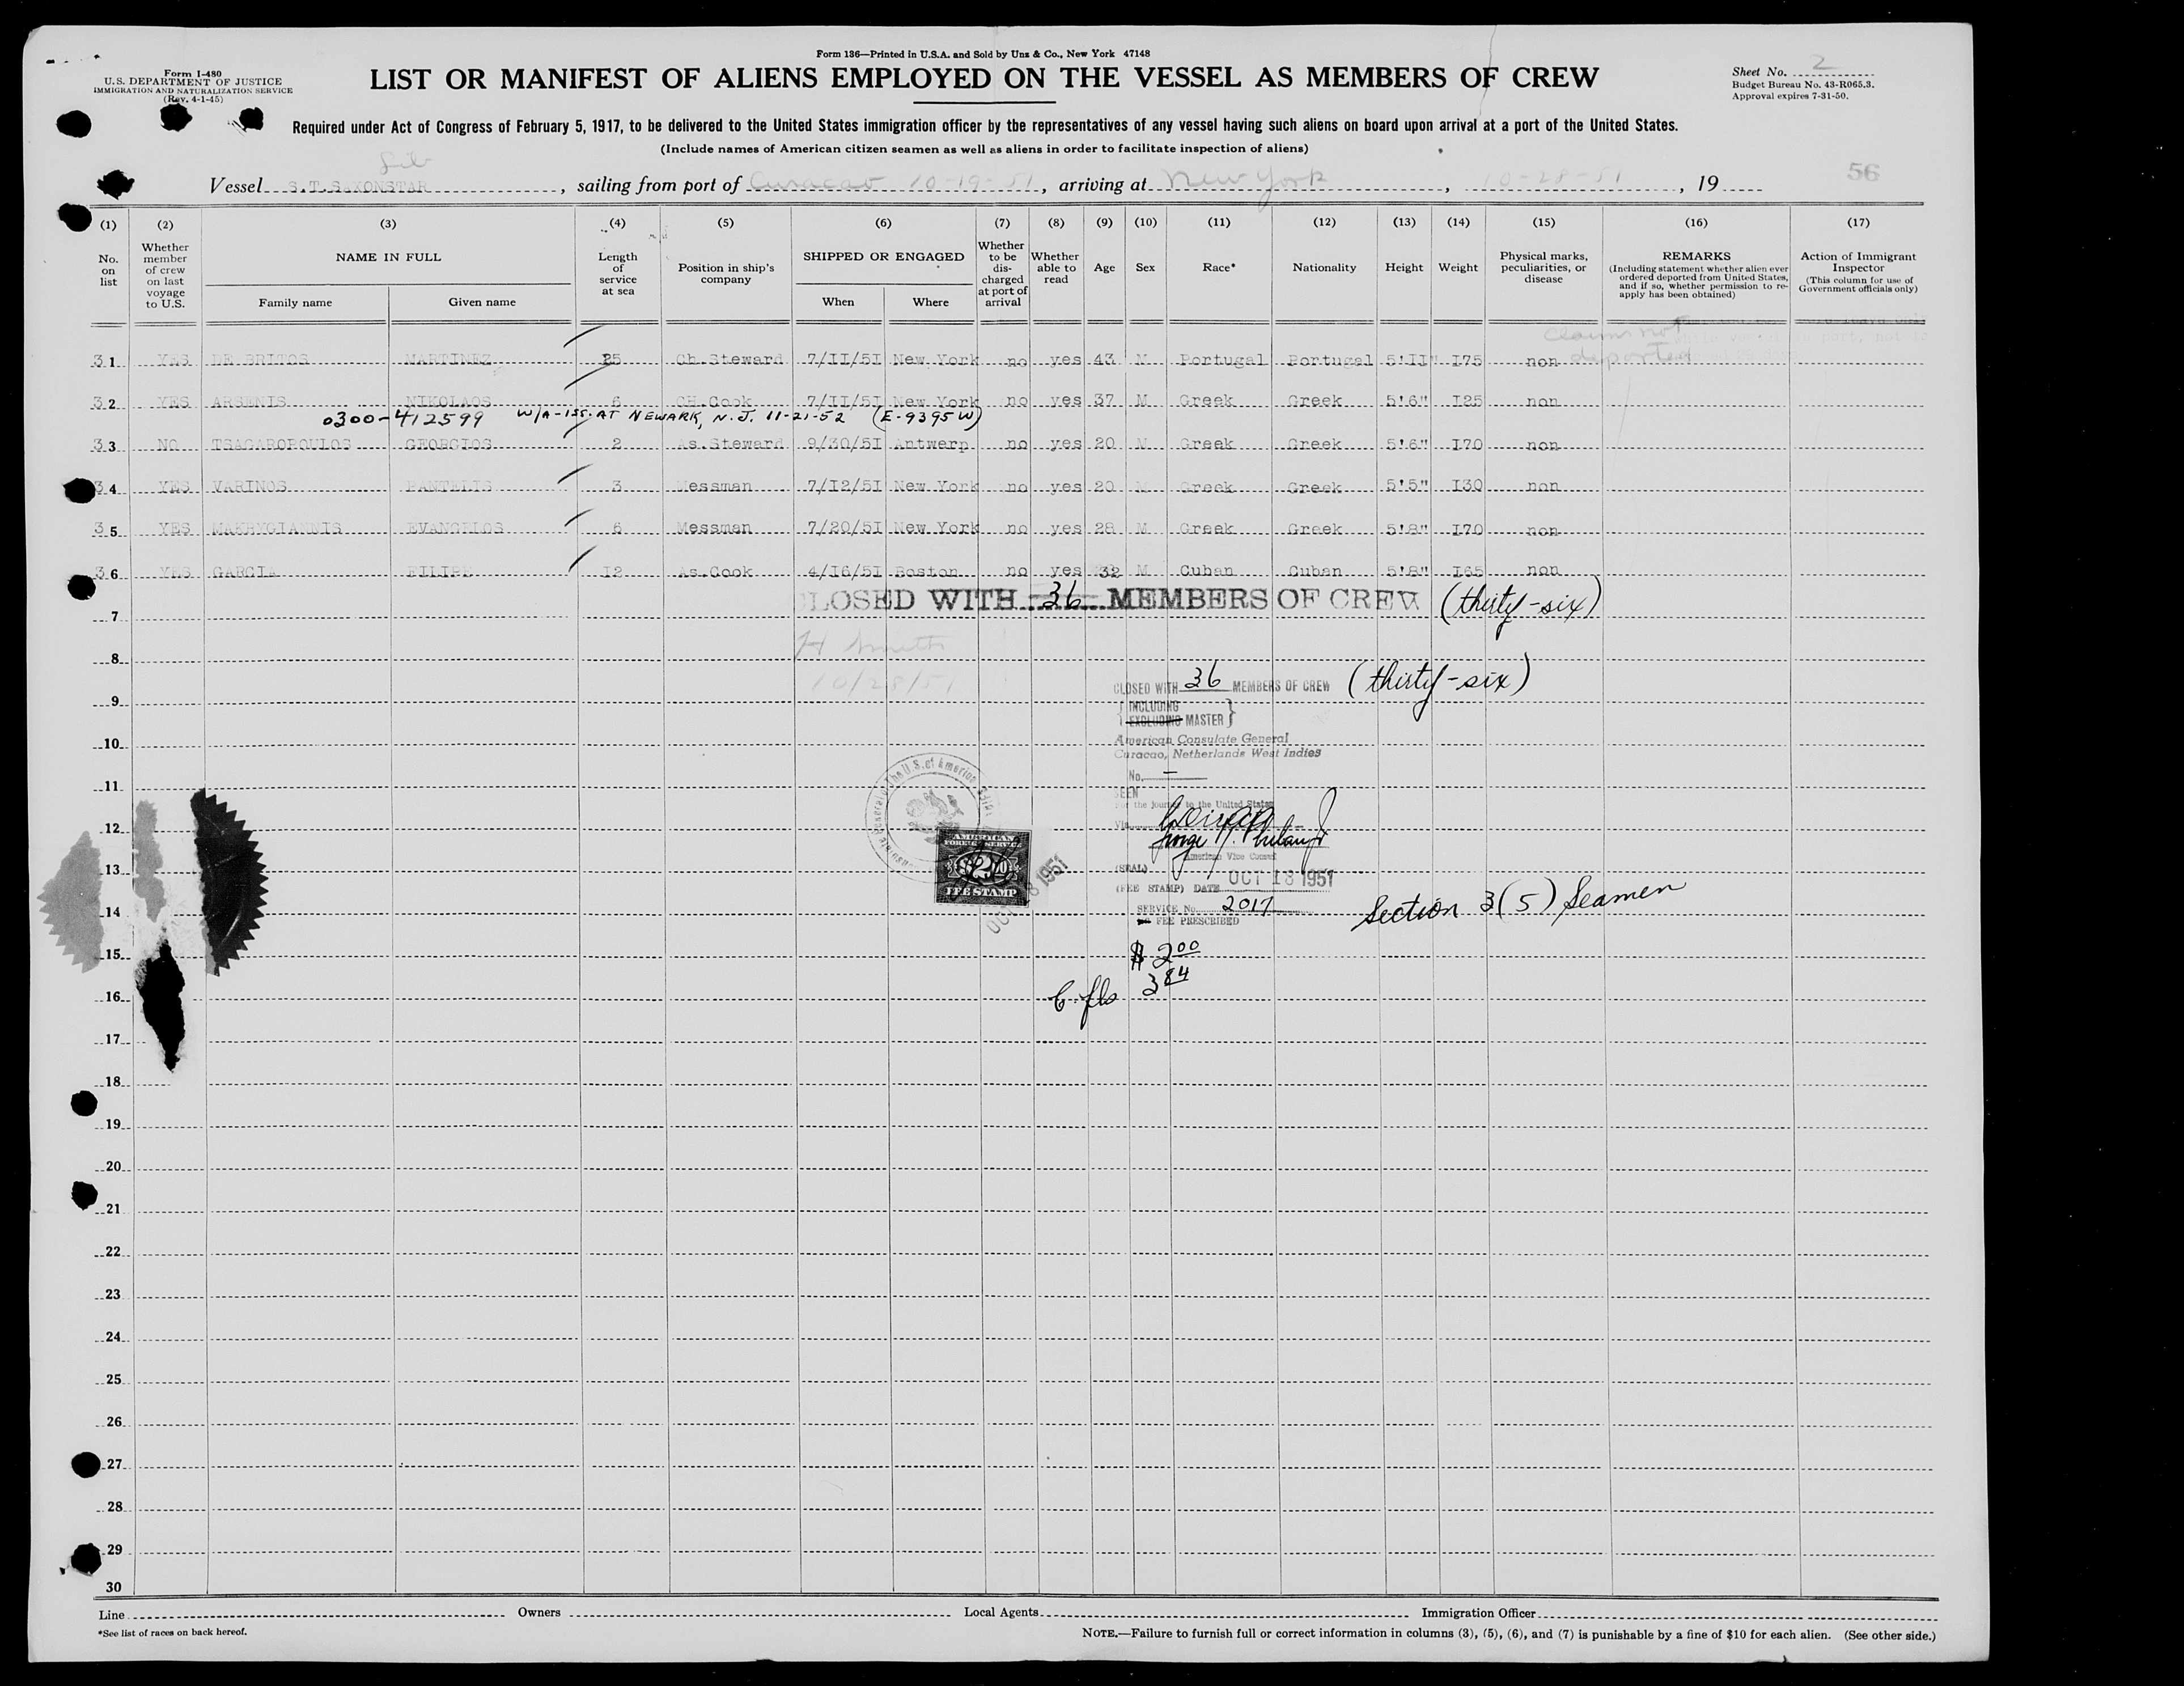 Form 136—Printed in U.S.A. and Sold by Unz & Co., New York 47148
Form I-480
U.S. DEPARTMENT OF JUSTICE
IMMIGRATION AND NATURALIZATION SERVICE
(Rev. 4-1-45)
LIST OR MANIFEST OF ALIENS EMPLOYED ON THE VESSEL AS MEMBERS OF CREW
Sheet No. 2
Budget Bureau No. 43-R065.3.
Approval expires 7-31-50.
Required under Act of Congress of February 5, 1917, to be delivered to the United States immigration officer by the representatives of any vessel having such aliens on board upon arrival at a port of the United States.
(Include names of American citizen seamen as well as aliens in order to facilitate inspection of aliens)
Vessel S.T.SAXONSTAR, sailing from port of Curacao 10-19-51, arriving at New York, 10-28-51, 19
56
(1) (2) (3) (4) (5) (6) (7) (8) (9) (10) (11) (12) (13) (14) (15) (16) (17)
No. on list
Whether member of crew on last voyage to U.S.
NAME IN FULL
Family name Given name
Length of service at sea
Position in ship's company
SHIPPED OR ENGAGED
When Where
Whether to be discharged at port of arrival
Whether able to read
Age
Sex
Race*
Nationality
Height
Weight
Physical marks, peculiarities, or disease
REMARKS
(Including statement whether alien ever ordered deported from United States, and if so, whether permission to re-apply has been obtained)
Action of Immigrant Inspector
(This column for use of Government officials only)
claims not
deported
31 YES DE BRITOS MARTINEZ 25 Ch.Steward 7/II/5I New York no yes 43 M Portugal Portugal 5'II" I75 non
32 YES ARSENIS NIKOLAOS 6 CH.Cook 7/II/5I New York no yes 37 M Greek Greek 5'6" I25 non
0300-412599 W/A-ISS. AT NEWARK, N.J. 11-21-52 (E-9395W)
33 NO TSAGAROPOULOS GEORGIOS 2 As.Steward 9/30/5I Antwerp no yes 20 M Greek Greek 5'6" I70 non
34 YES VARINOS PANTELIS 3 Messman 7/I2/5I New York no yes 20 M Greek Greek 5'5" I30 non
35 YES MAKRYGIANNIS EVANGELOS 6 Messman 7/20/5I New York no yes 28 M Greek Greek 5'8" I70 non
36 YES GARCIA FILIPE I2 As.Cook 4/I6/5I Boston no yes 32 M Cuban Cuban 5'8" I65 non
CLOSED WITH 36 MEMBERS OF CREW (thirty-six)
7
H Smith
8
10/28/51
CLOSED WITH 36 MEMBERS OF CREW (thirty-six)
9
INCLUDING
EXCLUDING MASTER
10
American Consulate General
Curacao, Netherlands West Indies
No. —
11
SEEN
For the journey to the United States
12
Via
American Vice Consul
AMERICAN
FOREIGN SERVICE
$2.00
FEE STAMP
OCT 18 1951
13
(SEAL)
(FEE STAMP) DATE OCT 18 1951
14
SERVICE No. 2017
FEE PRESCRIBED
Section 3(5) Seamen
15
$ 2.00
16
C. fls 3.84
17
18
19
20
21
22
23
24
25
26
27
28
29
30
Line Owners Local Agents Immigration Officer
*See list of races on back hereof.
NOTE.—Failure to furnish full or correct information in columns (3), (5), (6), and (7) is punishable by a fine of $10 for each alien. (See other side.)